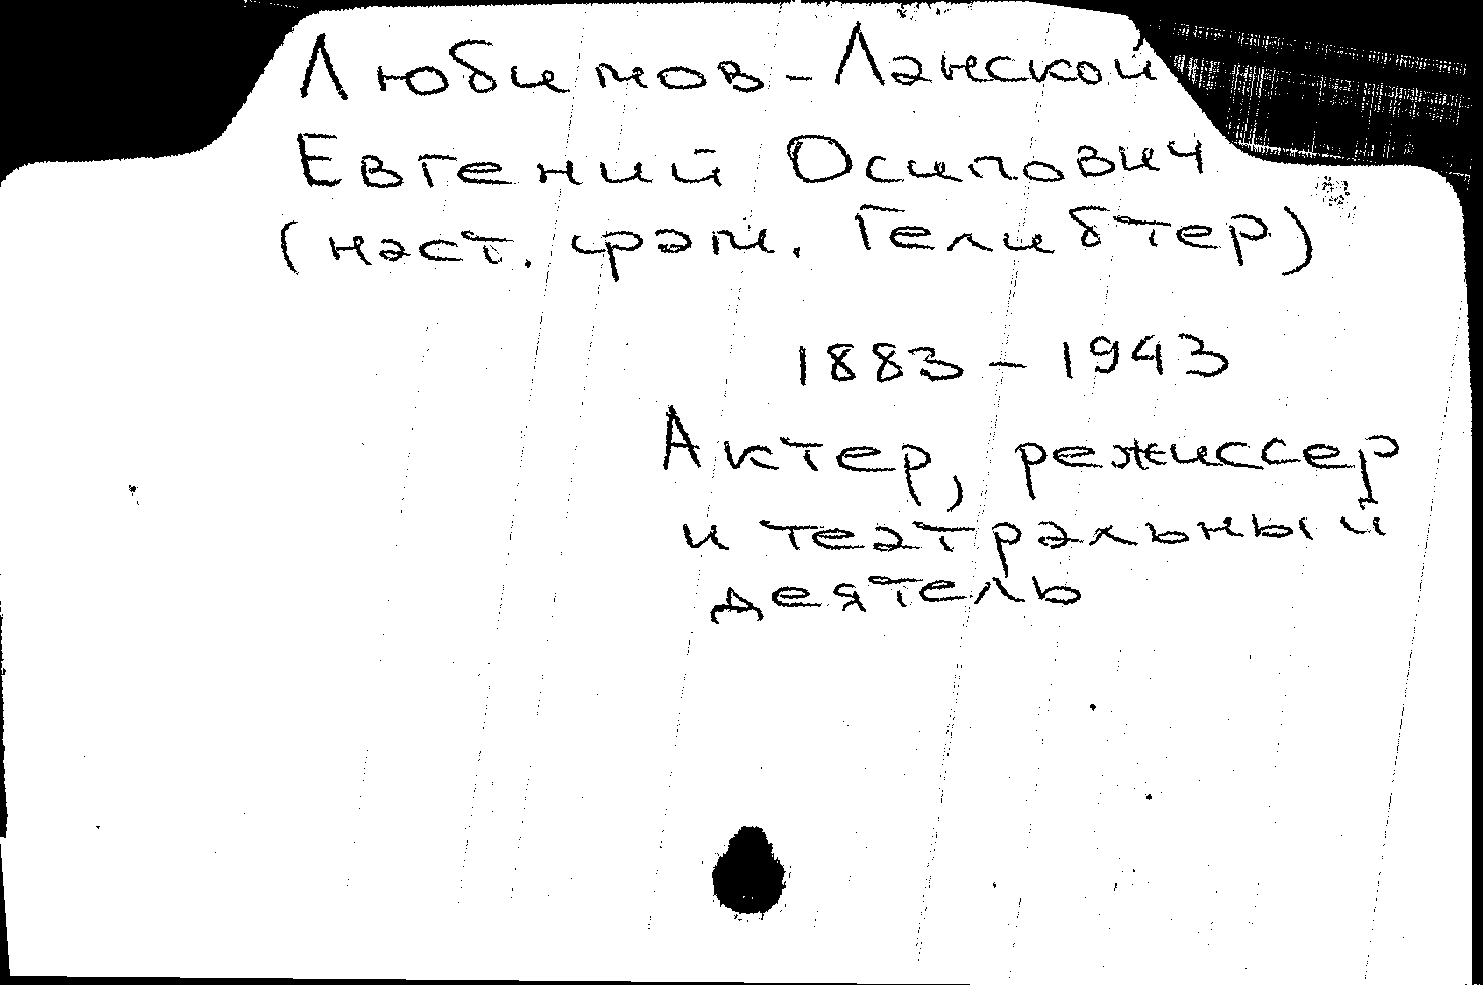 Любимов-Ланской
Евгений Осипович
(наст. фам. Гелибтер)
1883-1943
Актер, режиссер
и театральный
деятель